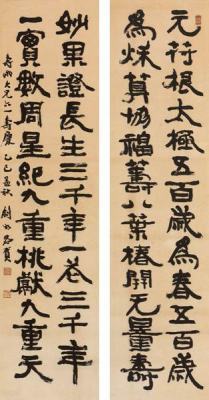 元符根太極五百歲為春五百歲
為秋算協福籌八葉椿開无量壽
妙果證長生三千年一花三千年
一實數周星紀九重桃獻九重天
大兄六一壽慶 乙巳孟秋